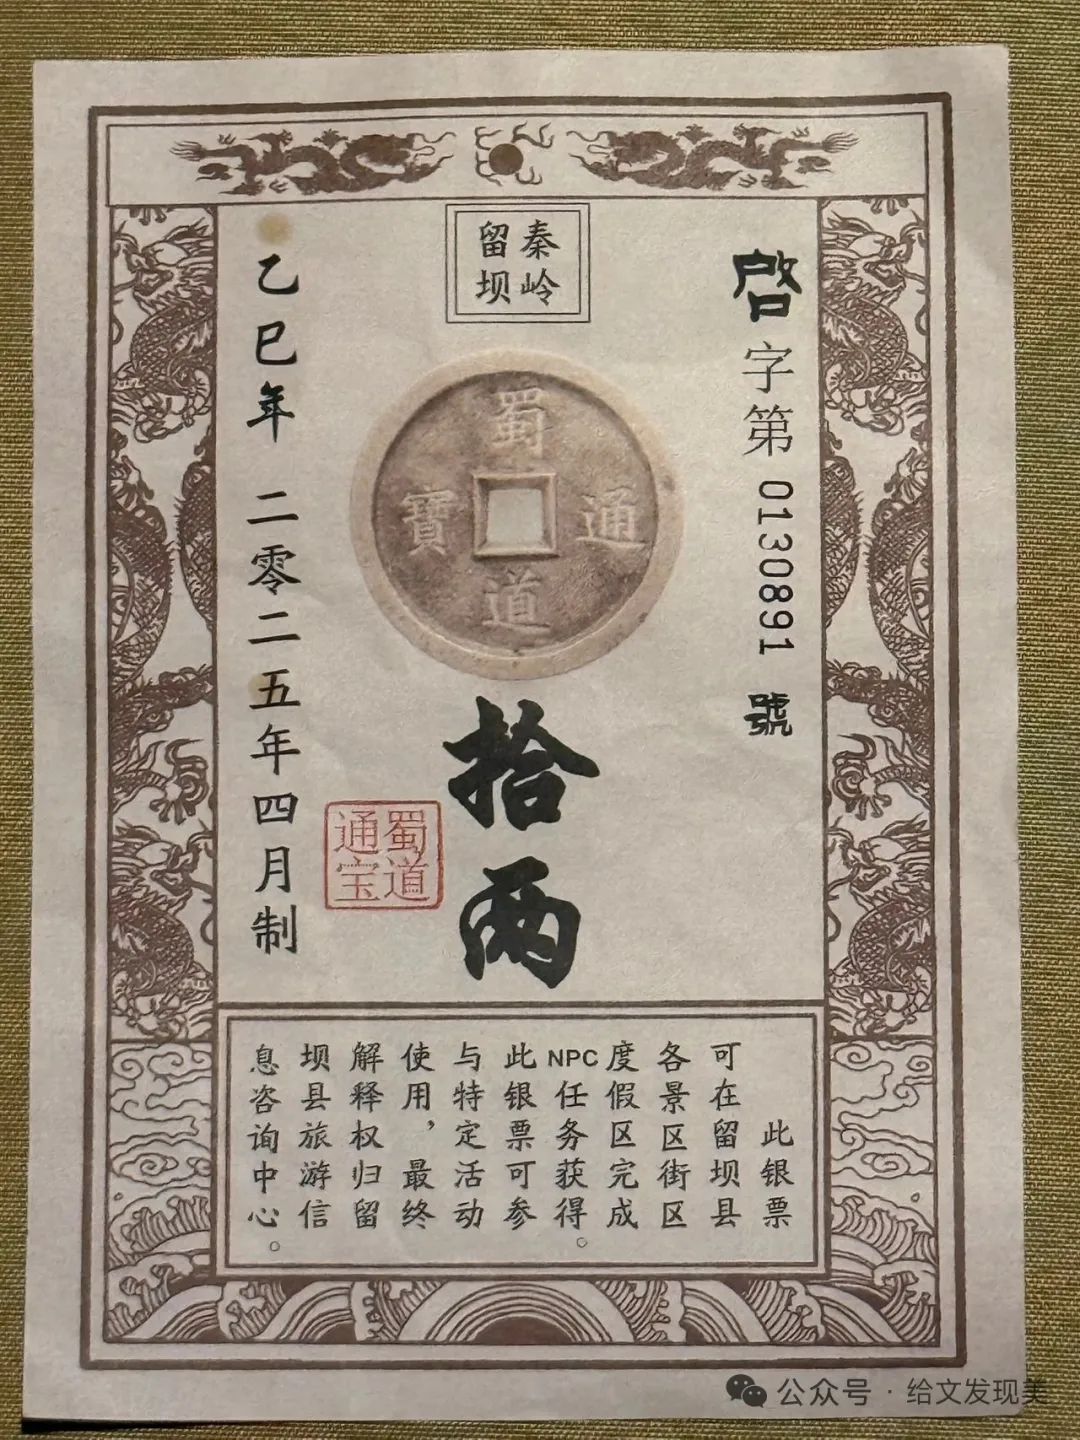 秦岭
留坝
啓字第0130891號
蜀道通寶
拾兩
蜀道
通宝
乙巳年 二零二五年四月制
此银票
可在留坝县
各景区街区
度假区完成
NPC任务获得。
此银票可参
与特定活动
使用，最终
解释权归留
坝县旅游信
息咨询中心。
公众号·给文发现美